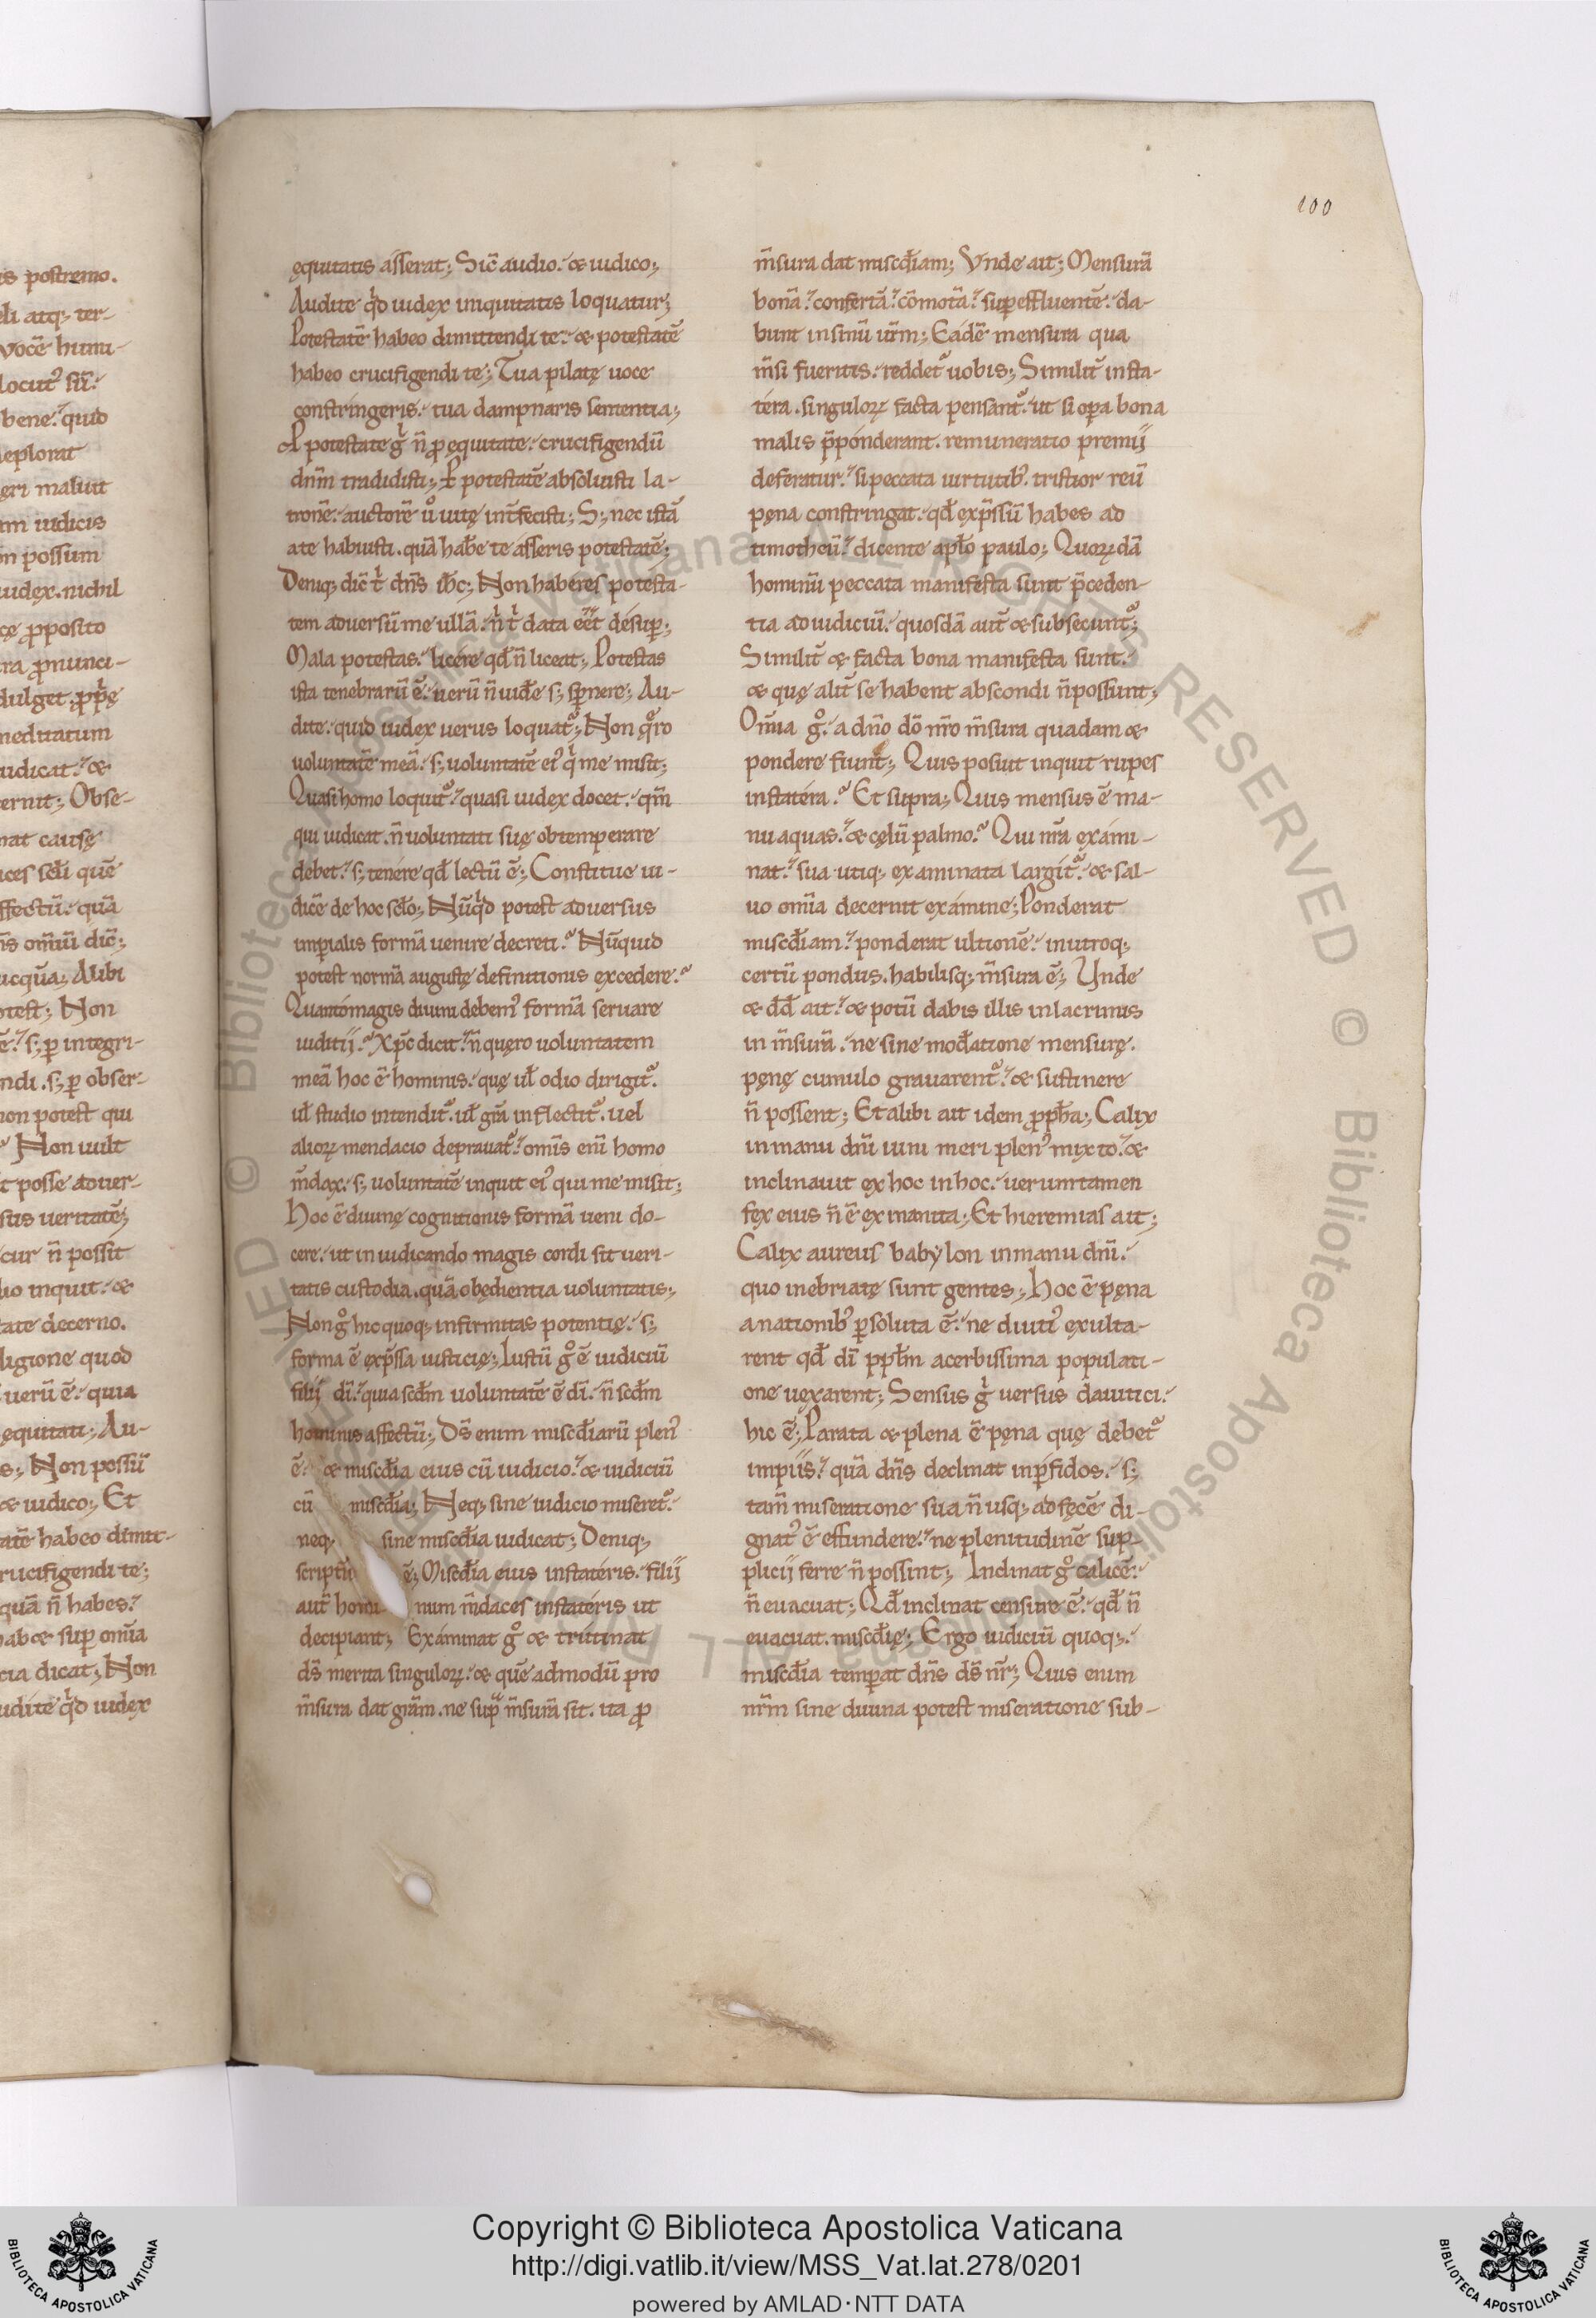 100
is postremo.
di atq; ter-
vocē humi-
locutꝰ sū.
bene. quid
deplorat
eri maluit
am iudicis
n possum
iudex. nichil
cę ꝓposito
ra ꝓnunci-
dulget. ꝓpꝛię
meditatum
iudicat. &
ernit; Obse-
nat causę
ices scd̄i quē
ffectū. quā
n̄s om̄iū dic̄;
ucquā; Alibi
otest; Non
ē. s; ꝑ integri-
ndi. s; ꝑ obser-
non potest qui
Non uult
t posse aduer-
sus ueritatē;
cur n̄ possit
dio inquit. &
tate decerno.
ligione quod
uerū ē. quia
ęquitati; Au-
s; Non possū
& iudico; Et
tatē habeo dimit-
crucifigendi te;
quā n̄ habes.
hab& suꝑ om̄a
cia dicat; Non
udite qⁱd iudex
ęquitatis asserat; Sic̄ audio. & iudico;
Audite qⁱd iudex iniquitatis loquatur;
Potestatē habeo dimittendi te. & potestatē
habeo crucifigendi te; Tua pilatę uoce
constringeris. tua dampnaris sententia;
P potestate gⁱ n̄ ꝓ ęquitate. crucifigendū
dn̄m tradidisti; P potestatē absoluisti la-
tronē. auctorē u͛ uitę int̄fecisti; S; nec istā
a te habuisti. quā hab̄e te asseris potestatē;
Deniq; dic̄ tⁱ dn̄s ih̄c; Non haberes potesta-
tem aduersū me ullā. nⁱ tⁱ data eēt désuꝑ;
Mala potestas. licére qd̄ n̄ liceat; Potestas
ista tenebrarū ē. uerū n̄ uid̄e s; sꝑnere; Au-
dite. quid iudex uerus loquat᷑; Non qͦro
uoluntatē meā. s; uoluntatē eiꝰ qⁱ me misit;
Quasi homo loquit᷑. quasi iudex docet. qm̄
qui iudicat. n̄ uoluntati suę obtemperare
debet. s; tenére qd̄ lectū ē; Constitue iu-
dicē de hoc scł̄o; Nūqⁱd potest aduersus
imꝑialis formā uenire decreti. Nūquid
potest normā augustę definitionis excedere.
Quantómagis diuini debemꝰ formā seruare
iuditij. Xp̄c dicit. n̄ quęro uoluntatem
meā hoc ē hominis. quę ul̄ odio dirigit᷑.
ul̄ studio intendit᷑. ul̄ gr̄a inflectit᷑. uel
alioꝝ mendacio deprauat᷑. om̄is eni̅ homo
m̄dax. s; uoluntatē inquit eiꝰ qui me misit;
Hoc ē diuinę cognitionis formā ueni do-
cere. ut in iudicando magis cordi sit ueri-
tatis custodia. quā obędientia uoluntatis;
Non gͦ hic quoq; infirmitas potentię. s;
forma ē exp̄ssa iusticię; Iustū gͦ ē iudiciū
filij di̅. quia scd̄m uoluntatē ē di̅. n̄ scd̄m
hominis affectū; Ds̄ enim miscd̄iarū plenꝰ
ē. & miscd̄ia eius cū iudicio. & iudiciū
cū miscd̄ia; Neq; sine iudicio miseret᷑.
neq; sine miscd̄ia iudicat; Deniq;
scriptū ē; Miscd̄ia eius instatéris. filij
aut̄ homi- num m̄daces instatéris ut
decipiant; Exáminat gͦ & trútinat
ds̄ merita singuloꝝ. & quē admodū pro
m̄sura dat grām. ne supͣ m̄surā sit. ita ꝓ
m̄sura dat miscd̄iam; Vnde ait; Mensurā
bonā. confertā. cōmotā. suꝑeffluentē. da-
bunt in sinū ur̄m; Eádē mensura qua
m̄si fueritis. reddet᷑ uobis; Similit̄ insta-
téra. singuloꝝ facta pensant᷑. ut si oꝑa bona
malis p̄pónderant. remuneratio premij
deferatur. si peccata uirtutibꝰ. tristior reū
pęna constringat. qd̄ exp̄ssū habes ad
timotheū. dicente apl̄o paulo; Quoꝝdā
hominū peccata manifesta sunt p̄ceden-
tia ad iudiciū. quosdā aut̄ & subsecunt᷑;
Similit̄ & facta bona manifesta sunt.
& quę alit̄ se habent abscondi n̄ possunt;
Om̄ia gͦ. a dn̄o dō nr̄o m̄sura quadam &
pondere fiunt; Quis posuit inquit rupes
instatéra. Et supra; Quis mensus ē ma-
nu aquas. & cęlū palmo. Qui nr̄a exámi-
nat. sua utiq; examinata largit᷑. & sal-
uo om̄ia decernit exámine; Ponderat
miscd̄iam. ponderat ultionē. inutroq;
certū pondus. habilisq; m̄sura ē; Unde
& dd̄ ait. & potū dabis illis inlacrimis
in m̄surā. ne sine mod̄atione mensurę.
pęnę cumulo grauarent᷑. & sustinere
n̄ possent; Et alibi ait idem ꝓph̄a; Calix
in manu dn̄i uini meri plenꝰ mixto. &
inclinauit ex hoc in hoc. uerumtamen
fex eius n̄ ē exinanita; Et hieremias ait;
Calix aureus babylon in manu dn̄i.
quo inebriatę sunt gentes; Hoc ē pęna
a nationibꝰ ꝑsoluta ē. ne diutiꝰ exulta-
rent qd̄ di̅ ppl̄m acerbissima populati-
one uexarent; Sensus gⁱ uersus dauitici.
hic ē; Parata & plena ē pęna quę debet᷑
impiis. quā dn̄s declinat in ꝑfidos. s;
tam̄ miseratione sua n̄ usq; ad fęcē di-
gnatꝰ ē effundere. ne plenitudinē sup-
plicij ferre n̄ possint; Inclinat gͦ calicē.
n̄ euacuat; Qd̄ inclinat censure ē. qd̄ n̄
euacuat. miscd̄ię; Ergo iudiciū quoq;.
miscd̄ia temꝑat dn̄s ds̄ nr̄; Quis enim
nr̄m sine diuina potest miseratione sub-
© Biblioteca Apostolica Vaticana ALL RIGHTS RESERVED
Copyright © Biblioteca Apostolica Vaticana
http://digi.vatlib.it/view/MSS_Vat.lat.278/0201
powered by AMLAD·NTT DATA
BIBLIOTECA APOSTOLICA VATICANA
BIBLIOTECA APOSTOLICA VATICANA